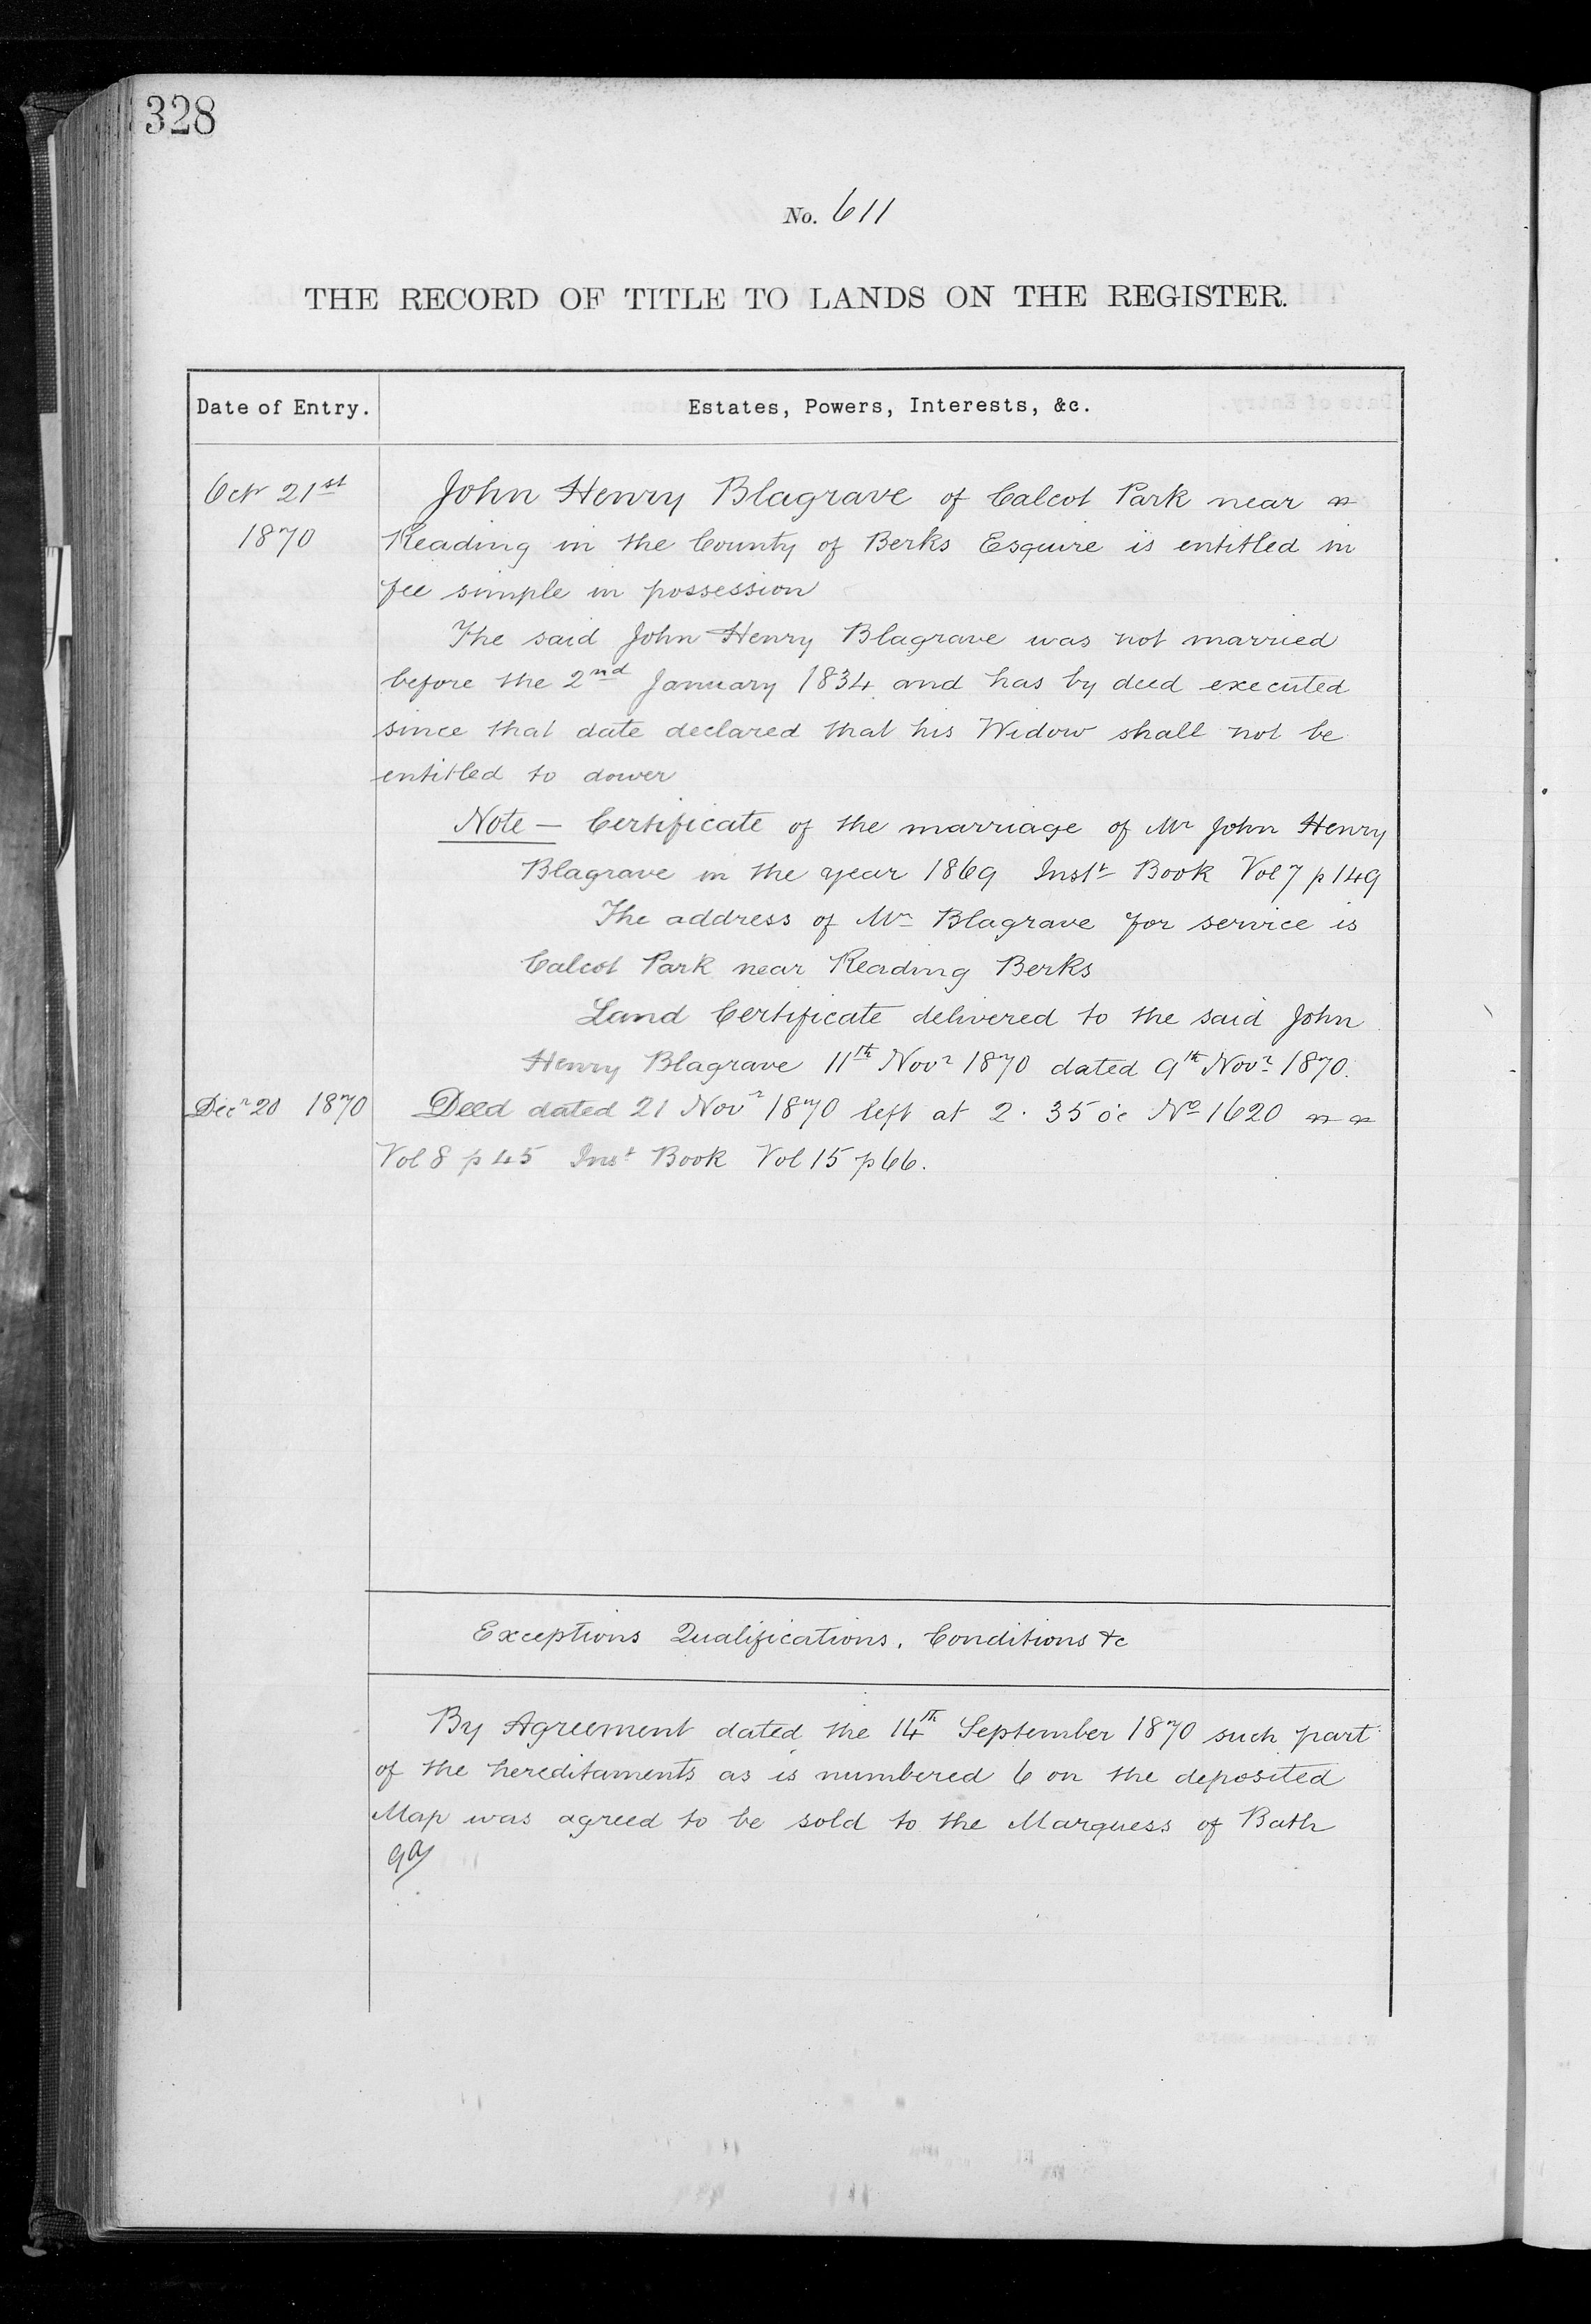 328
No. 611
THE RECORD OF TITLE TO LANDS ON THE REGISTER.
Date of Entry.
Estates, Powers, Interests, &c.
Octr 21st
1870
John Henry Blagrave of Calcot Park near
Reading in the County of Berks Esquire is entitled in
fee simple in possession
The said John Henry Blagrave was not married
before the 2nd January 1834 and has by deed executed
since that date declared that his Widow shall not be
entitled to dower
Note — Certificate of the marriage of Mr John Henry
Blagrave in the year 1869 Instt Book Vol 7 p 149
The address of Mr Blagrave for service is
Calcot Park near Reading Berks
Land Certificate delivered to the said John
Henry Blagrave 11th Novr 1870 dated 9th Novr 1870.
Decr 20 1870
Deed dated 21 Novr 1870 left at 2. 35 o'c No 1620
Vol 8 p 45 Inst Book Vol 15 p 66.
Exceptions Qualifications, Conditions &c
By Agreement dated the 14th September 1870 such part
of the hereditaments as is numbered 6 on the deposited
Map was agreed to be sold to the Marquess of Bath